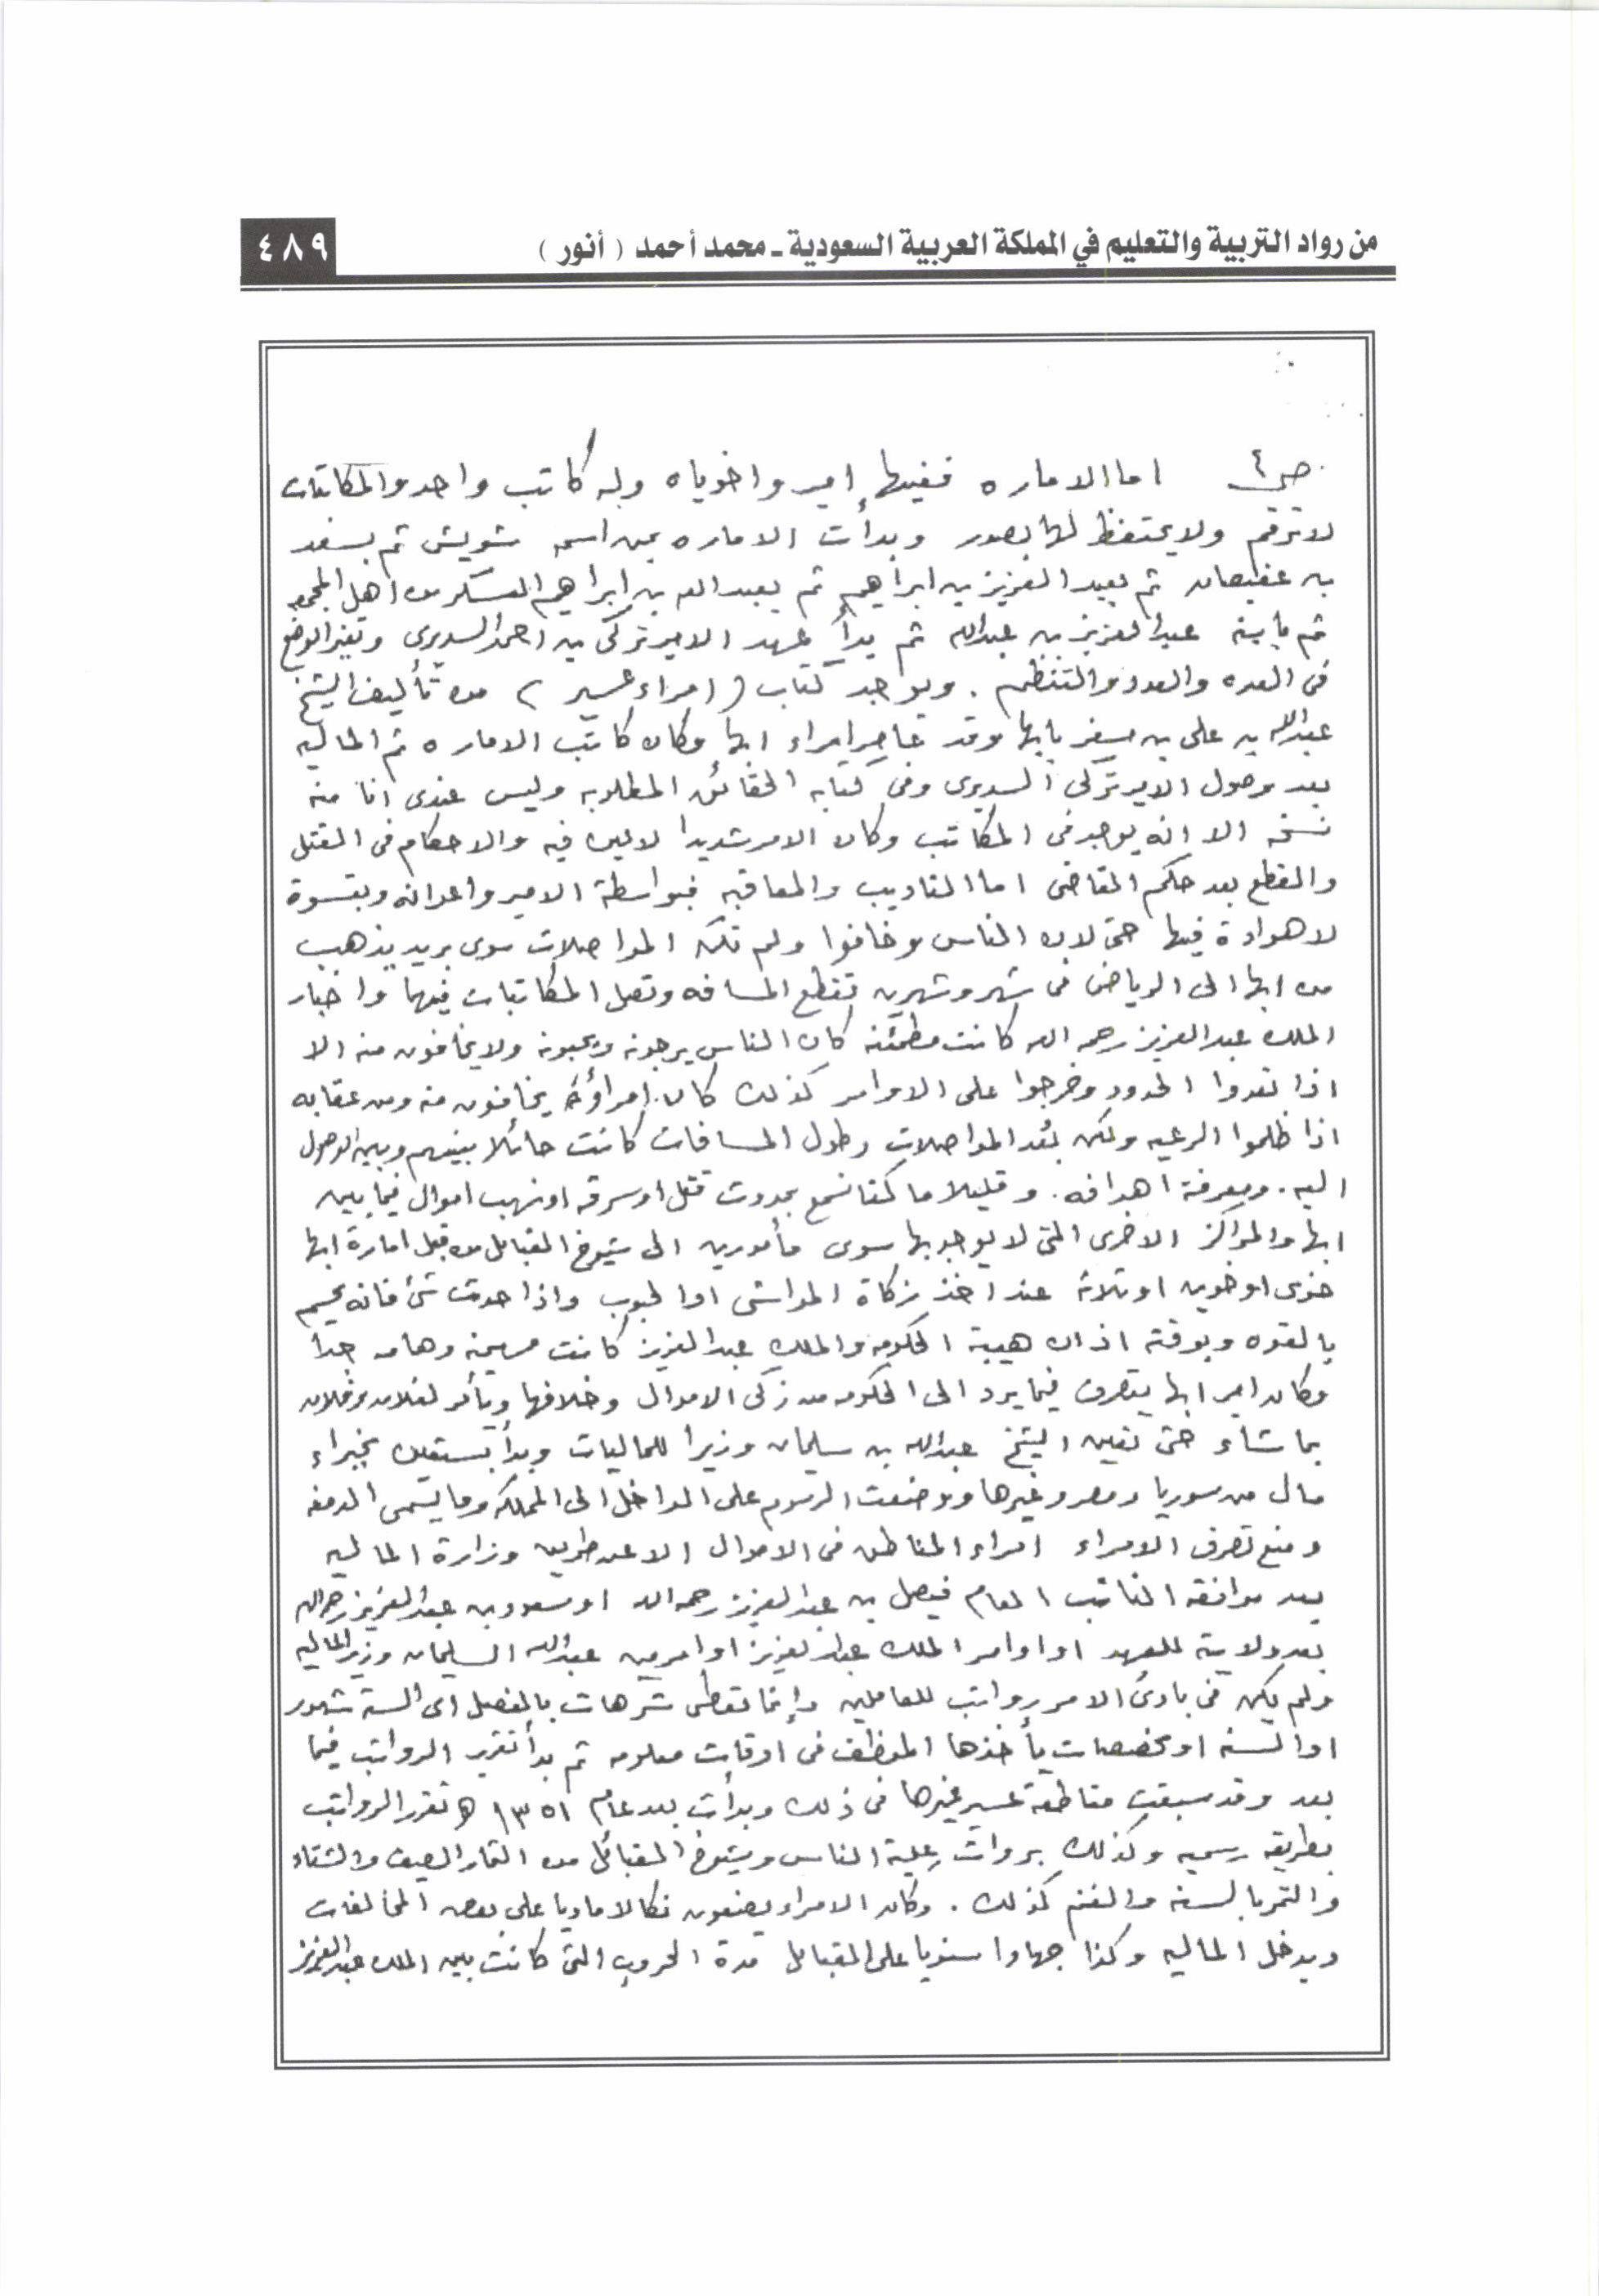 من رواد التربية والتعليم في المملكة العربية السعودية - محمد أحمد ( أنور )
٤٨٩
ص٤ اما الاماره ففيها امير واخوياه وله كاتب واحد والمكاتبات
لاترقم ولايحتفظ لها بصور وبدأت الاماره بمن اسمه شويش ثم بسعد
بن عفيصان ثم بعبد العزيز بن ابراهيم ثم بعبد الله بن ابراهيم العسكر من اهل المجمعه
ثم بابنه عبدالعزيز بن عبدالله ثم بدأ عهد الامير تركي بن احمد السديرى وتغير الوضع
فى العده والعدد والتنظيم . ويوجد كتاب ( امراء عسير ) من تأليف الشيخ
عبدالله بن على بن مسفر بابها وقد عاصر امراء ابها وكان كاتب الاماره ثم الماليه
بعد وصول الامير تركي السديرى وفى كتابه الحقائق المطلوبه وليس عندى انا منه
نسخه الا انه يوجد فى المكاتب وكان الامر شديدا لالين فيه والاحكام فى القتل
والقطع بعد حكم القاضى اما التاديب والمعاقبه فبواسطة الامير واعوانه وبقسوة
لاهوادة فيها حتى لان الناس وخافوا ولم تكن المواصلات سوى بريد يذهب
من ابها الى الرياض فى شهر وشهرين تقطع المسافه وتصل المكاتبات فيهما واخبار
الملك عبدالعزيز رحمه الله كانت مطمئنه كان الناس يرجونه ويحبونه ولايخافون منه الا
اذا تعدوا الحدود وخرجوا على الاوامر كذلك كان امراؤه يخافون منه ومن عقابه
اذا ظلموا الرعيه ولكن بُعد المواصلات وطول المسافات كانت حائلا بينهم وبين الوصول
اليه . ومعرفة اهدافه . وقليلا ما كنا نسمع بحدوث قتل او سرقه او نهب اموال فيما بين
ابها والمراكز الاخرى التى لايوجد بها سوى مأمورين الى شيوخ القبائل من قبل امارة ابها
خوى او خوين او ثلاثه عند اخذ زكاة المواشى او الحبوب واذا حدث شئ فانه يحسم
بالقوه وبوقته اذ ان هيبة الحكومه والملك عبدالعزيز كانت مهيمنه وهامه جدا
وكان امير ابها يتصرف فيما يرد الى الحكومه من زكى الاموال وخلافها ويأمر لفلان وفلان
بما شاء حتى تعين الشيخ عبدالله بن سليمان وزيرا للماليات وبدأ يستعين بخبراء
مال من سوريا ومصر وغيرها ووضعت الرسوم على الداخل الى المملكه وما يسمى الدمغه
ومنع تصرف الامراء امراء المناطق فى الاموال الا عن طريق وزارة الماليه
بعد موافقة النائب العام فيصل بن عبدالعزيز رحمه الله او سعود بن عبدالعزيز رحمه الله
بعد ولاية للعهد او اوامر الملك عبدالعزيز او امر من عبدالله السليمان وزير الماليه
ولم يكن فى بادئ الامر رواتب للعاملين وإنما تعطى شرهات بالفصل اى الستة شهور
او السنه او مخصصات يأخذها الموظف فى اوقات معلومه ثم بدأ تقرير الرواتب فيما
بعد وقد سبقت مقاطعة عسير غيرها فى ذلك وبدأت بعد عام ١٣٥١ هـ تقرر الرواتب
بطريقه رسميه وكذلك بروات علية الناس وشيوخ القبائل من الثمار الصيف والشتاء
والتمر بالسنه والغنم كذلك . وكان الامراء يضعون نكالا ماديا على بعض المخالفات
ويدخل الماليه وكذا جهادا سنويا على القبائل مدة الحروب التى كانت بين الملك عبدالعزيز